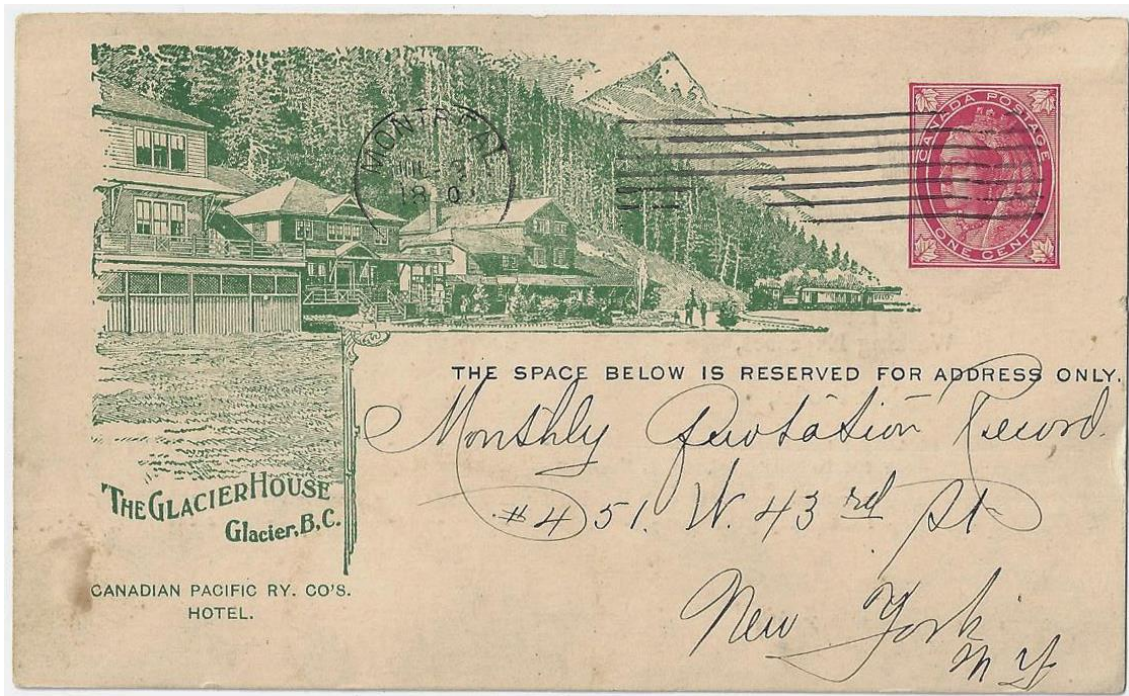 MONTREAL
CANADA POSTAGE
ONE CENT
THE SPACE BELOW IS RESERVED FOR ADDRESS ONLY.
Monthly Quotation Record.
#451. W. 43rd St
New York
N Y
THE GLACIER HOUSE
Glacier, B.C.
CANADIAN PACIFIC RY. CO'S.
HOTEL.